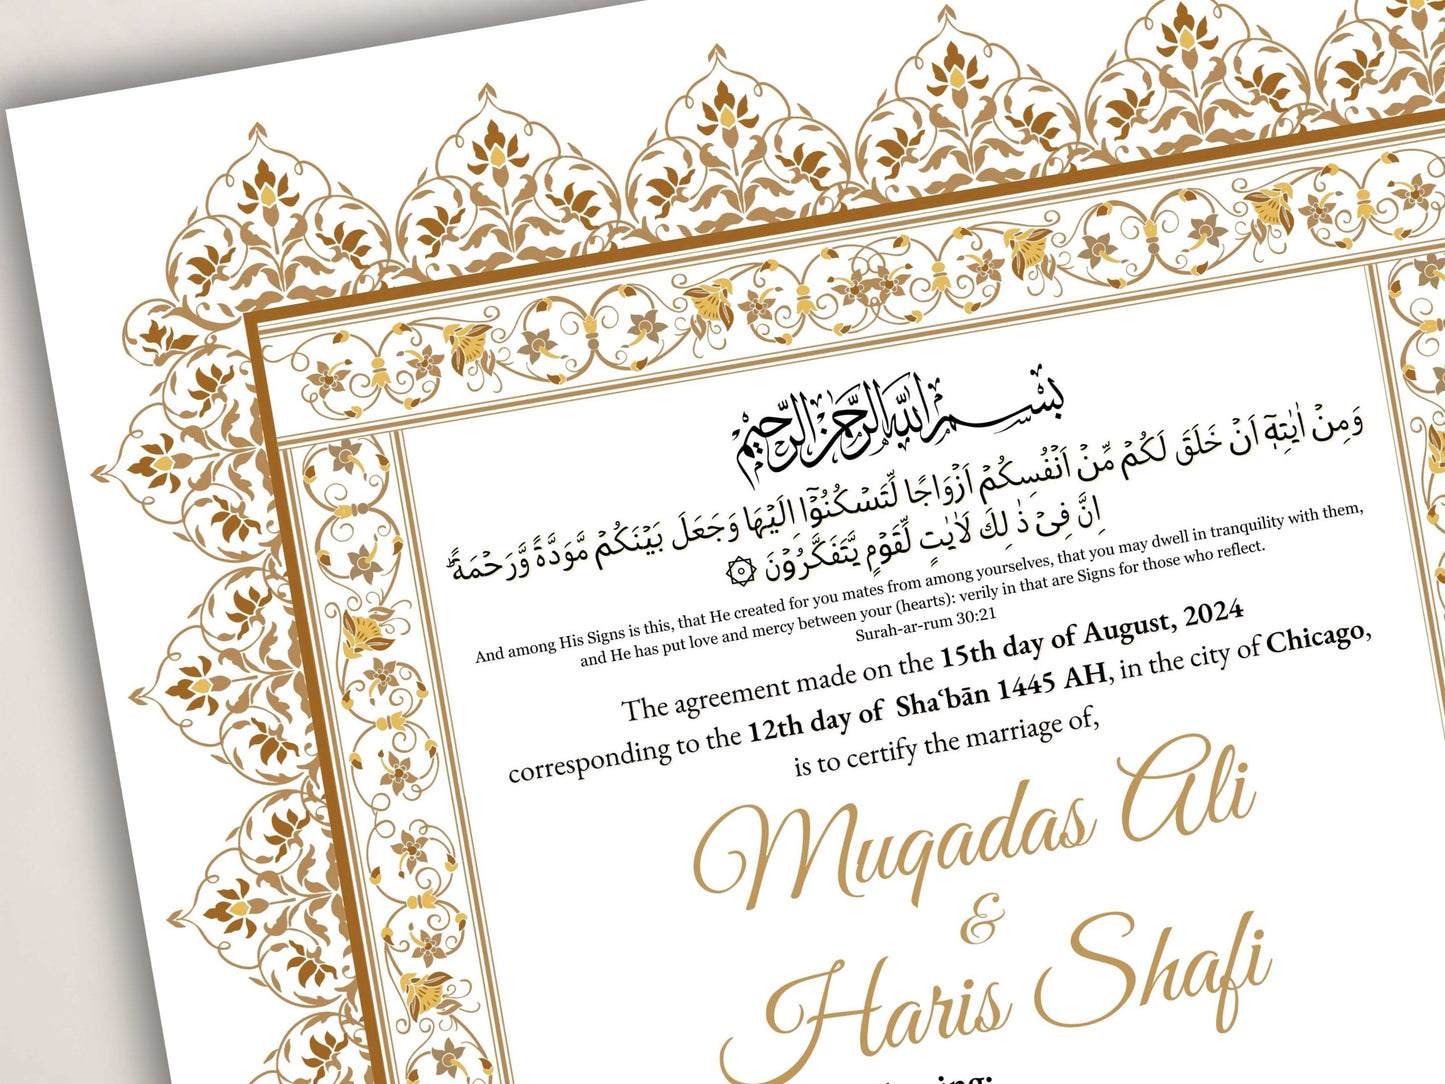 بسم الله الرحمن الرحيم
وَمِنْ اٰيٰتِهٖٓ اَنْ خَلَقَ لَكُمْ مِّنْ اَنْفُسِكُمْ اَزْوَاجًا لِّتَسْكُنُوْٓا اِلَيْهَا وَجَعَلَ بَيْنَكُمْ مَّوَدَّةً وَّرَحْمَةً ؕ
اِنَّ فِىْ ذٰ لِكَ لَاٰيٰتٍ لِّقَوْمٍ يَّتَفَكَّرُوْنَ ۞
And among His Signs is this, that He created for you mates from among yourselves, that you may dwell in tranquility with them,
and He has put love and mercy between your (hearts): verily in that are Signs for those who reflect.
Surah-ar-rum 30:21
The agreement made on the 15th day of August, 2024
corresponding to the 12th day of Shaʿbān 1445 AH, in the city of Chicago,
is to certify the marriage of,
Muqadas Ali
&
Haris Shafi